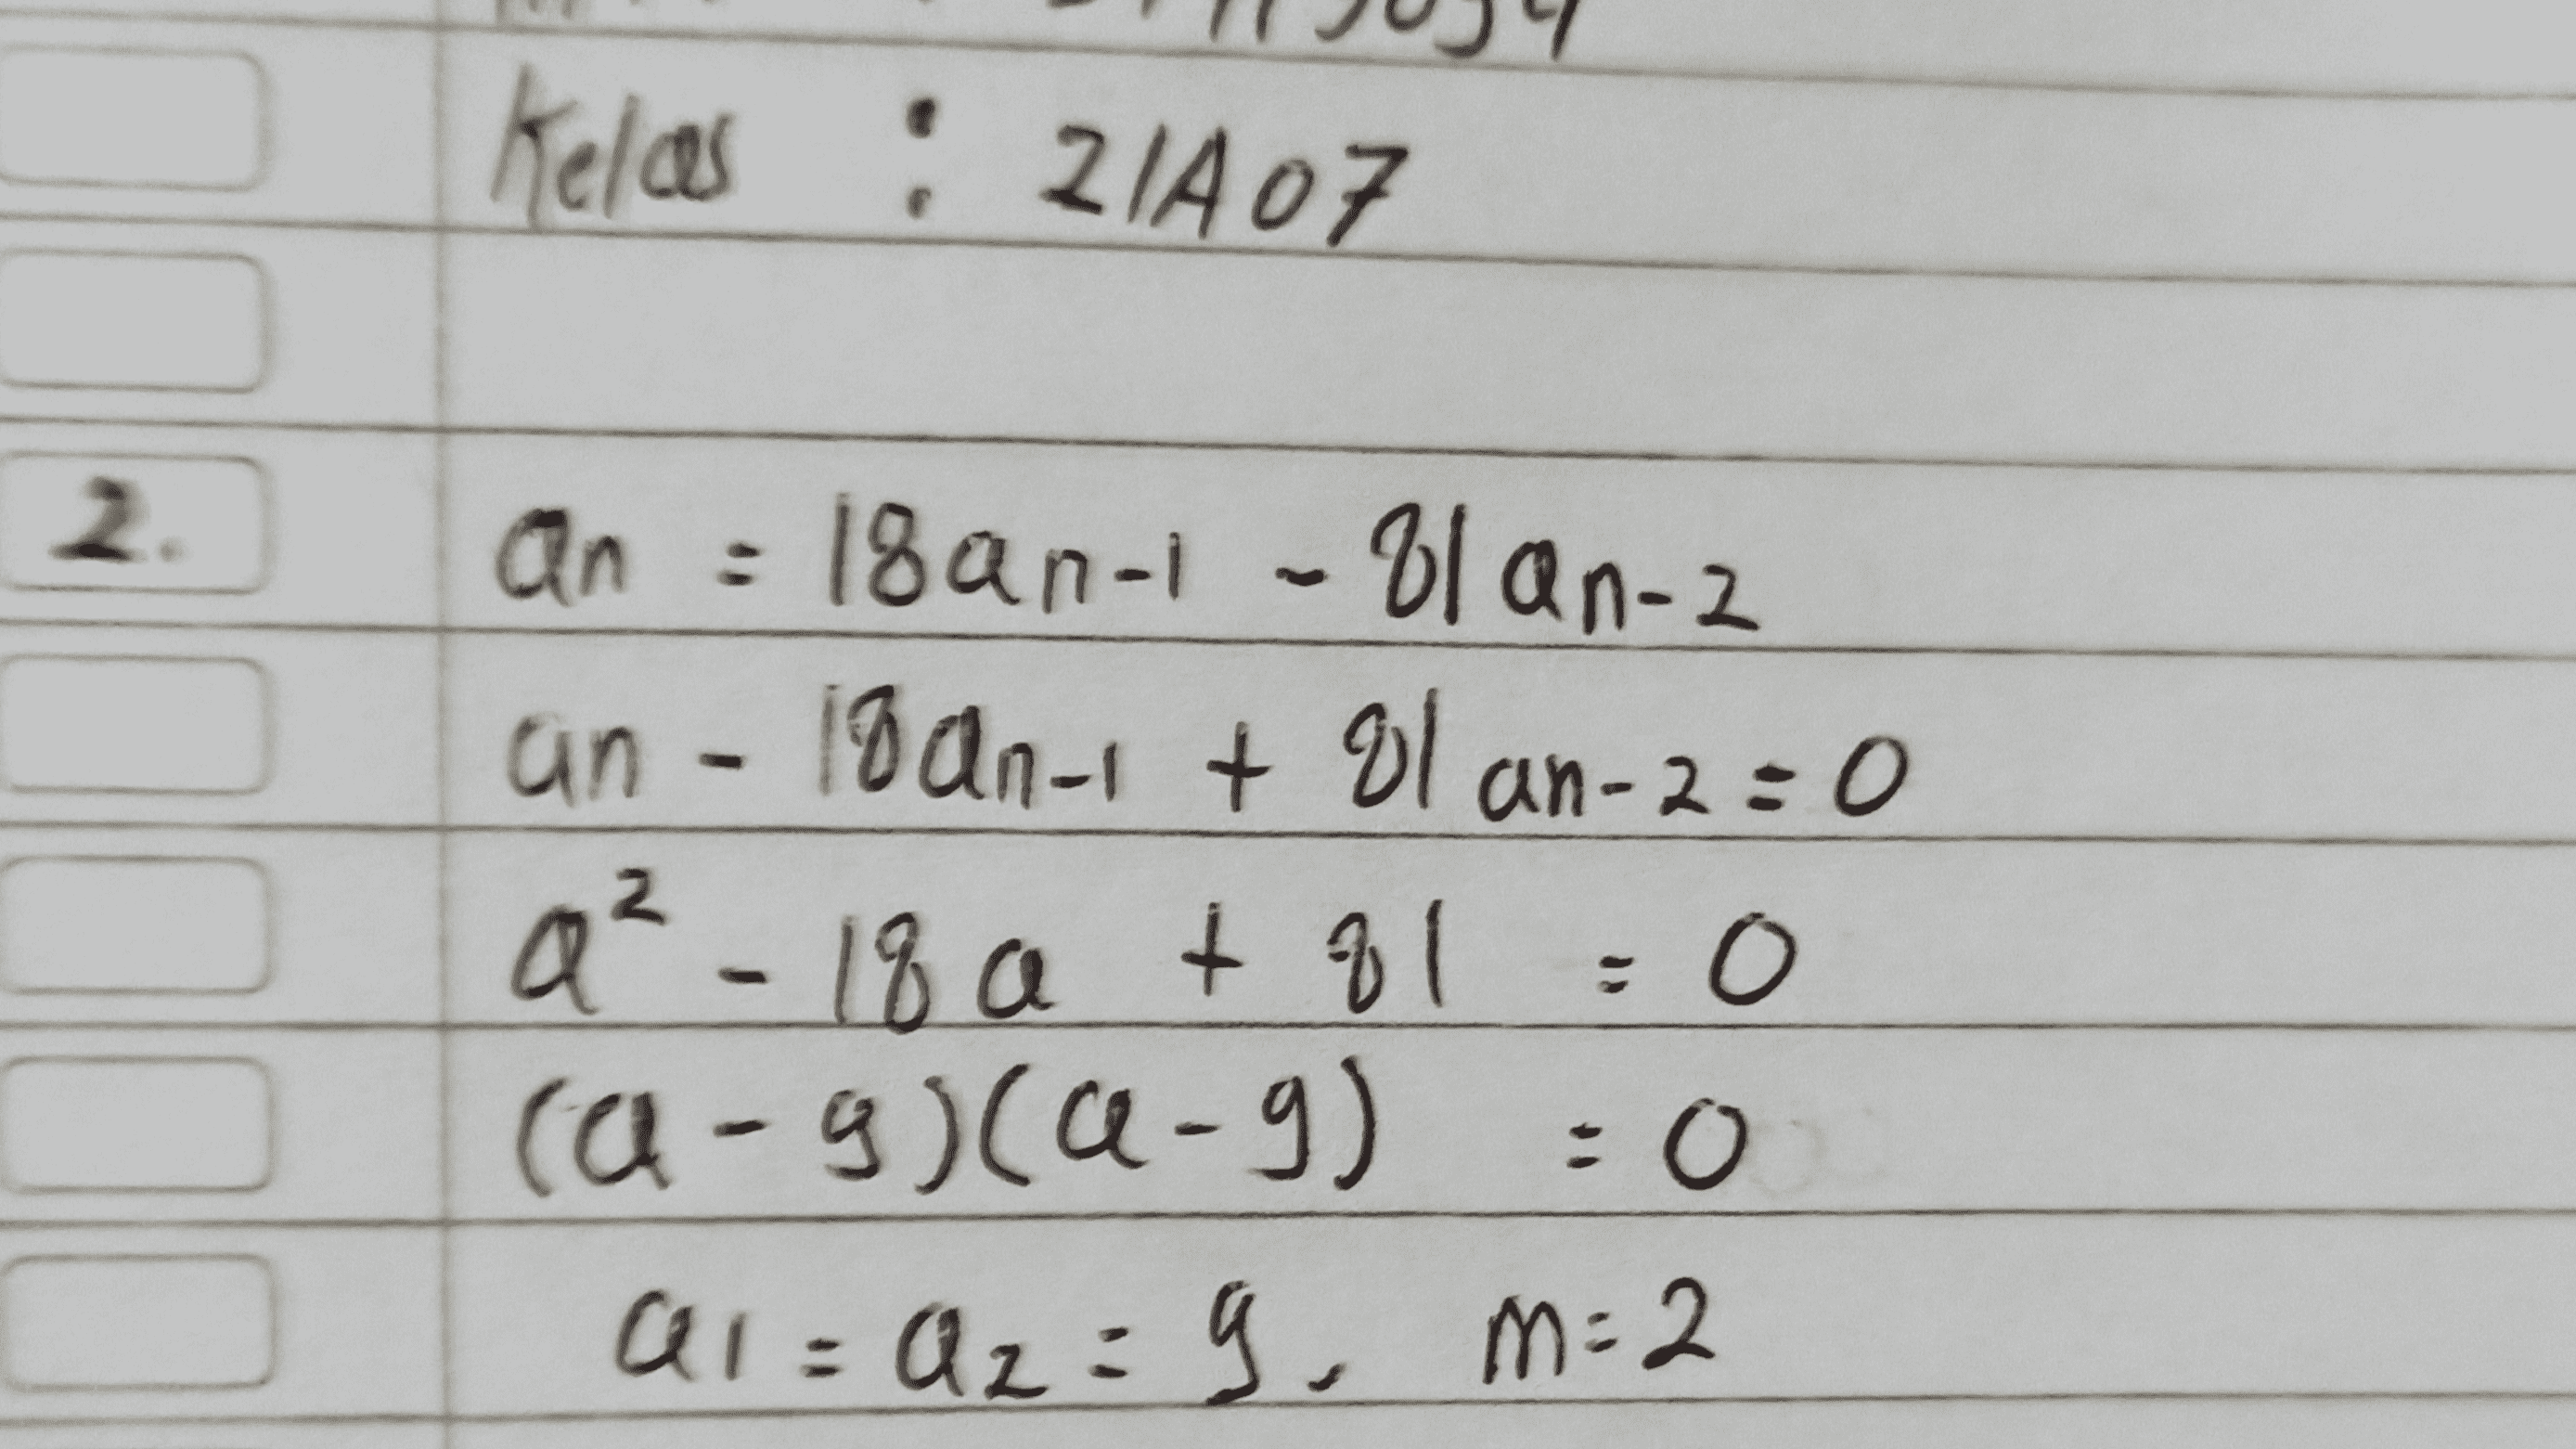 Kelas : 21A07
2. an = 18an-1 - 81an-2
an - 18an-1 + 81an-2 = 0
a² - 18a + 81 = 0
(a - 9)(a - 9) = 0
a1 = a2 = 9, m = 2